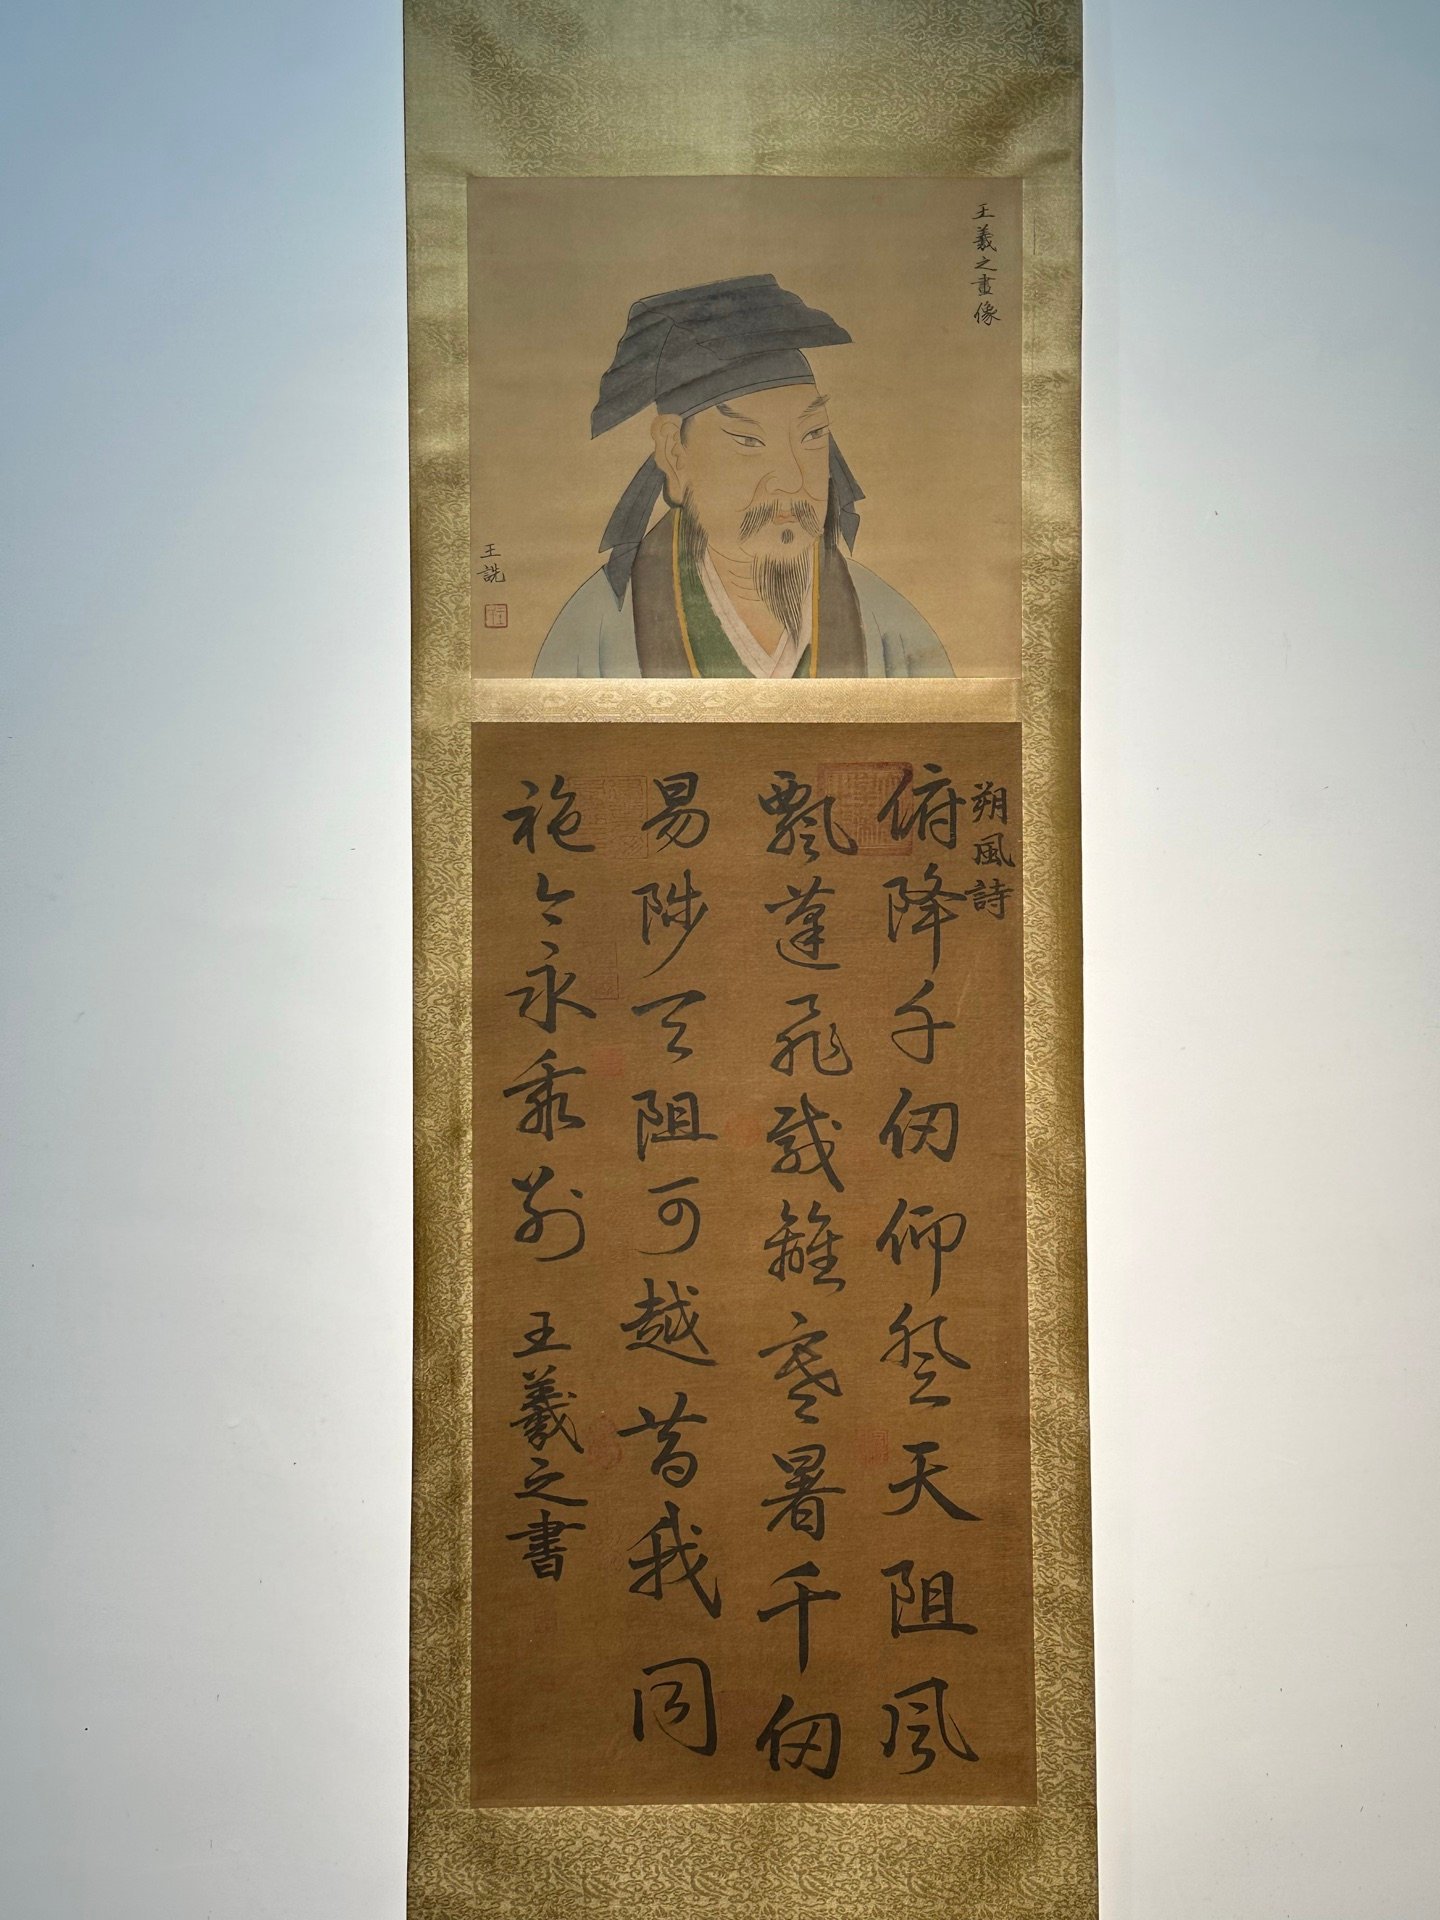 王羲之畫像
王詵
朔風詩
俯降千仞仰登天阻風
飄蓬飛載離寒暑千仞
易陟天阻可越昔我同
袍今永乖别
王羲之書